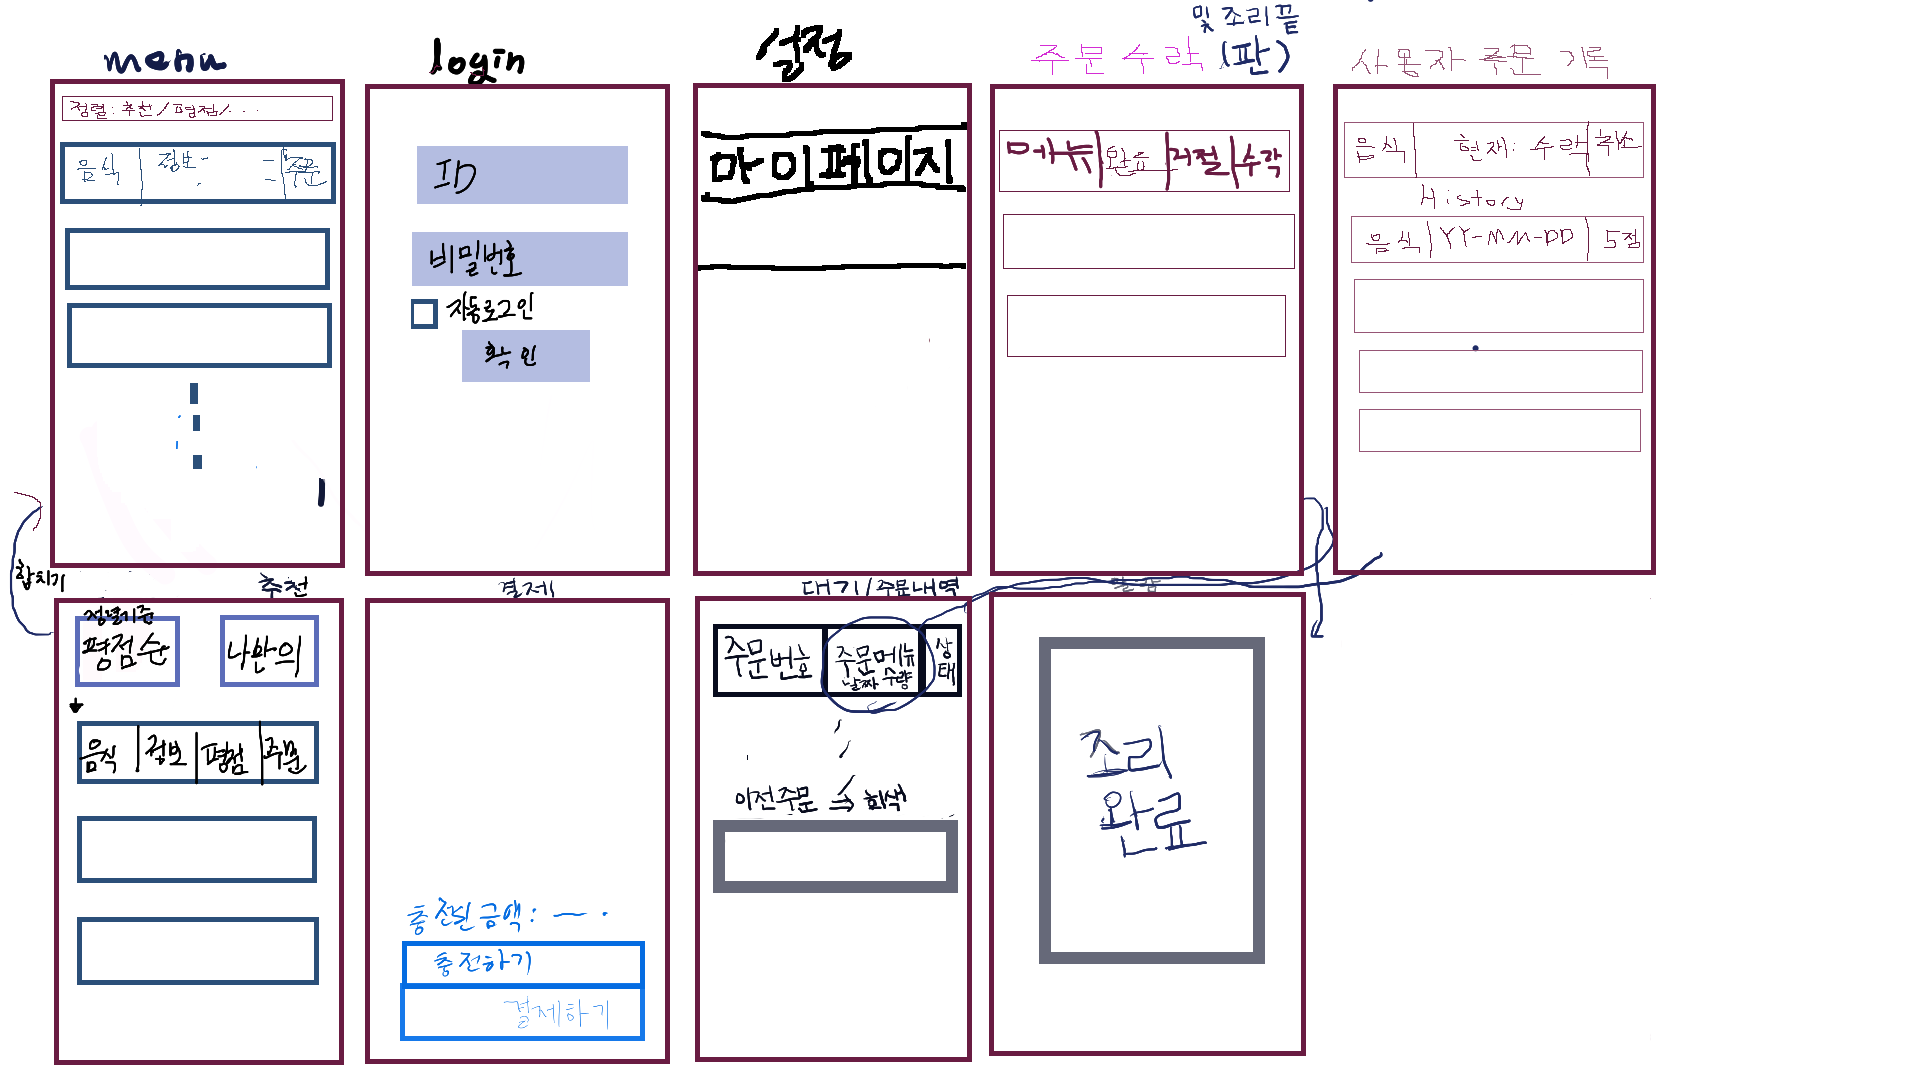 menu
정렬: 추천/평점/...
음식 정보 주문
login
ID
비밀번호
자동로그인
확인
설정
마이페이지
및 조리끝
주문 수락 (판)
메뉴 완료 거절 수락
사용자 주문 기록
음식 현재: 수락 취소
History
음식 YY-MM-DD 5점
합치기
추천
정렬기준
평점순 나만의
음식 정보 평점 주문
결제
충전된 금액:
충전하기
결제하기
대기/주문내역
주문번호 주문메뉴 상태
날짜 수량
이전주문 ⇒ 회색
조리
완료